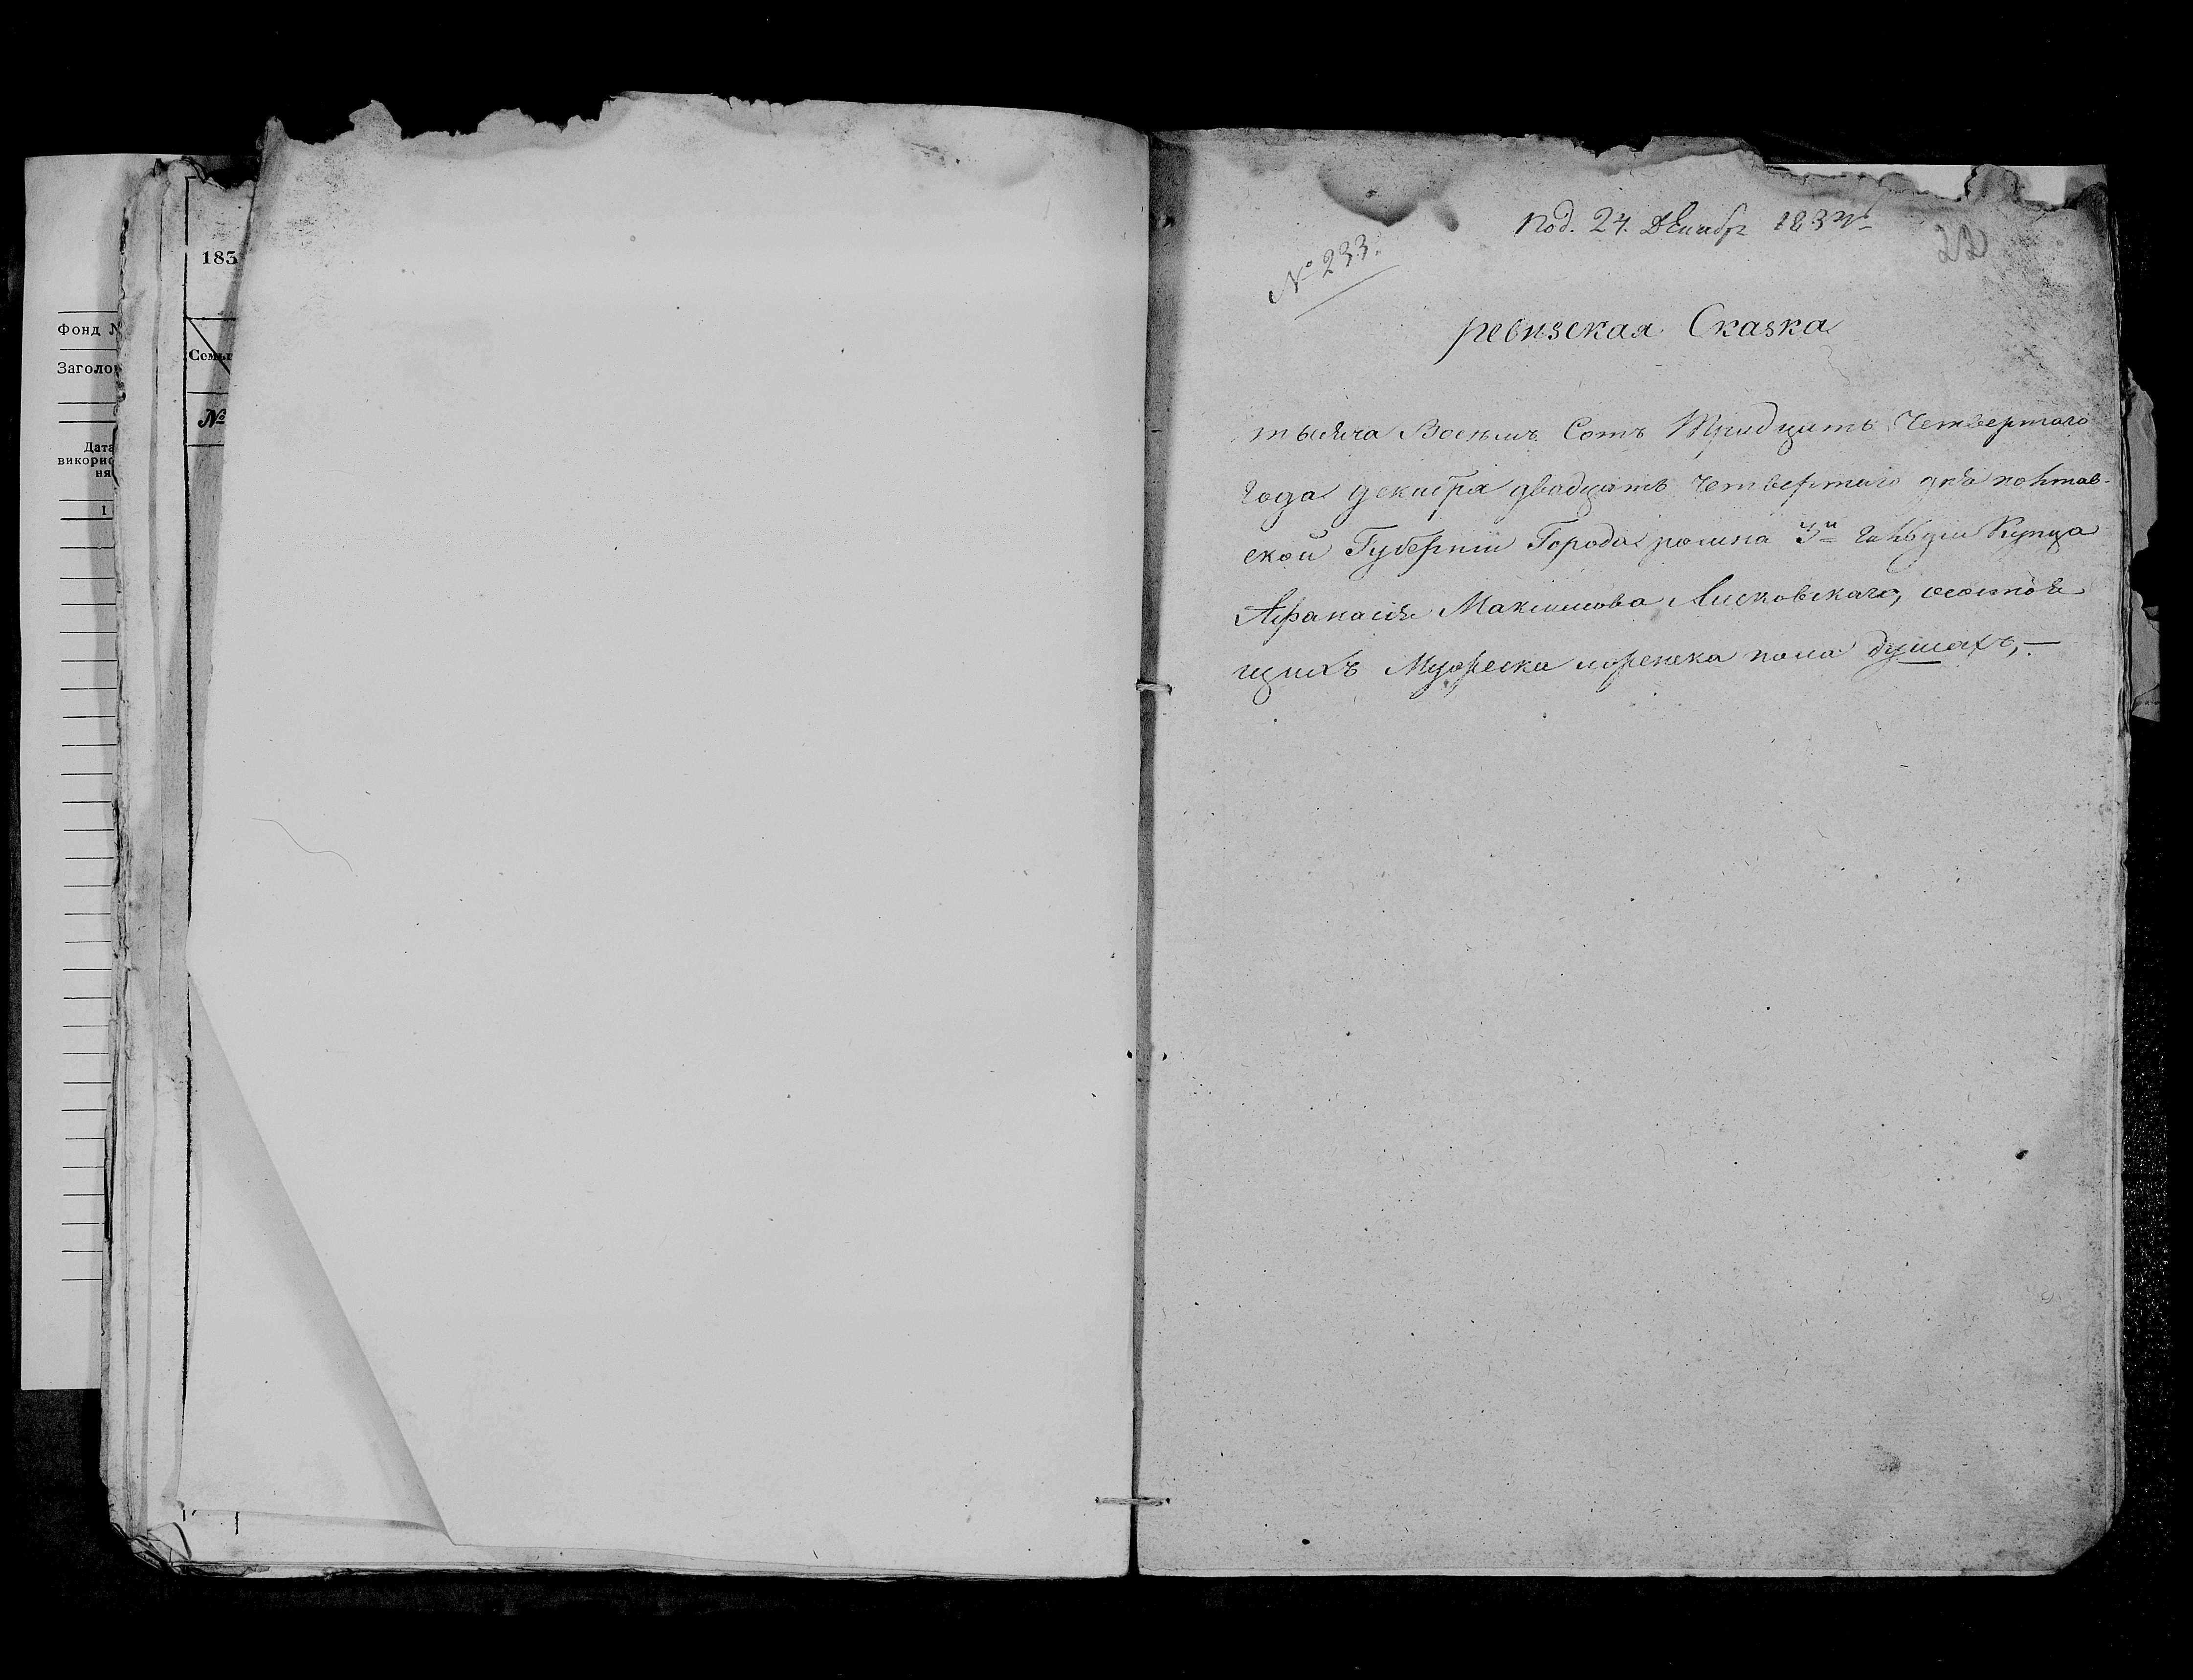 183
Фонд №
Семьи
Заголо
№
Дата
викорис
ня
1
Под. 24. Декабр 1834го
22
№ 233.
ревизская Сказка
тысяча Восемь Сотъ Тридцать Четвертаго
Года декабря двадцать Четвертаго дня полтав-
ской Губернии Города ромна 3й гильдии Купца
Афанасия Максимова Лисковскаго, осостоя
щихъ Мужеска иженска пола душахъ,—